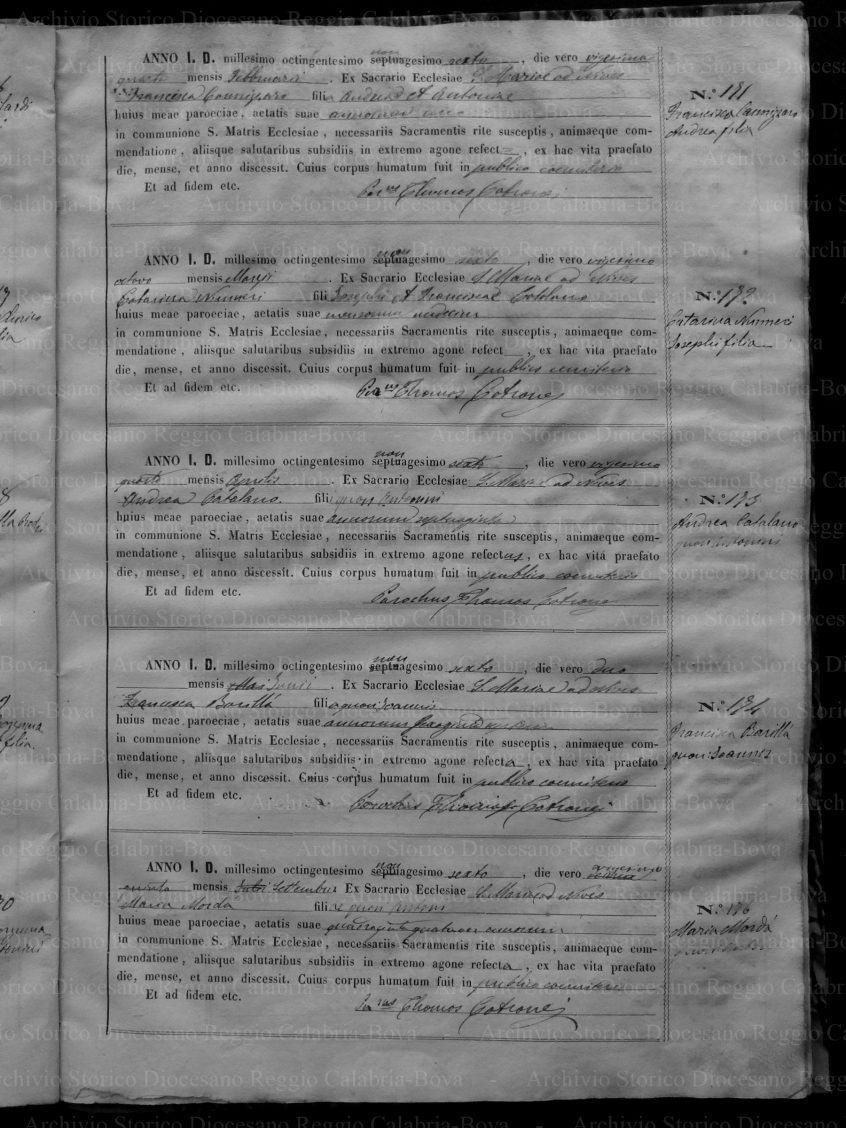 ANNO I. D. millesimo octingentesimo septuagesimo non sexto, die vero vigesimo
quarto mensis Februarii. Ex Sacrario Ecclesiae S. Mariae ad Nives
Francesca filia Andreae et Antoniae
huius meae paroeciae, aetatis suae annorum
in communione S. Matris Ecclesiae, necessariis Sacramentis rite susceptis, animaeque com-
mendatione, aliisque salutaribus subsidiis in extremo agone refect, ex hac vita praefato
die, mense, et anno discessit. Cuius corpus humatum fuit in publico coemiterio
Et ad fidem etc.
Par.us Thomas Cotronei
N.º 171
Francesca Cannizzaro
Andrea filia
ANNO I. D. millesimo octingentesimo septuagesimo non sexto, die vero vigesimo
octavo mensis Martii. Ex Sacrario Ecclesiae S. Mariae ad Nives
Catarina Nunneri filia Josephi et Franciscae Catalano
huius meae paroeciae, aetatis suae mensium undecim
in communione S. Matris Ecclesiae, necessariis Sacramentis rite susceptis, animaeque com-
mendatione, aliisque salutaribus subsidiis in extremo agone refect, ex hac vita praefato
die, mense, et anno discessit. Cuius corpus humatum fuit in publico cemiterio
Et ad fidem etc.
Par.us Thomas Cotronei
N.º 172
Catarina Nunneri
Josephi filia
ANNO I. D. millesimo octingentesimo septuagesimo non sexto, die vero vigesimo
quarto mensis Aprilis. Ex Sacrario Ecclesiae S. Mariae ad Nives
Andrea Catalano. fili quon Antonini
huius meae paroeciae, aetatis suae annorum septuaginta
in communione S. Matris Ecclesiae, necessariis Sacramentis rite susceptis, animaeque com-
mendatione, aliisque salutaribus subsidiis in extremo agone refectus, ex hac vita praefato
die, mense, et anno discessit. Cuius corpus humatum fuit in publico coemiterio
Et ad fidem etc.
Parochus Thomas Cotronei
N.º 173
Andrea Catalano
quon Antonini
ANNO I. D. millesimo octingentesimo septuagesimo non sexto, die vero duo
mensis Mai Junii. Ex Sacrario Ecclesiae S. Mariae ad Nives
Francesca Barillà filia quon Joannis
huius meae paroeciae, aetatis suae annorum
in communione S. Matris Ecclesiae, necessariis Sacramentis rite susceptis, animaeque com-
mendatione, aliisque salutaribus subsidiis in extremo agone refecta, ex hac vita praefato
die, mense, et anno discessit. Cuius corpus humatum fuit in publico coemiterio
Et ad fidem etc.
Parochus Thomas Cotronei
N.º 174
Francesca Barillà
quon Joannes
ANNO I. D. millesimo octingentesimo septuagesimo non sexto, die vero vigesimo
quinto mensis Settembris Ex Sacrario Ecclesiae S. Mariae ad Nives
Maria Mordà filiae quon Antoni
huius meae paroeciae, aetatis suae quadraginta quatuor annorum
in communione S. Matris Ecclesiae, necessariis Sacramentis rite susceptis, animaeque com-
mendatione, aliisque salutaribus subsidiis in extremo agone refecta, ex hac vita praefato
die, mense, et anno discessit. Cuius corpus humatum fuit in publico coemiterio
Et ad fidem etc.
Par.us Thomas Cotronei
N.º 176
Maria Mordà
Archivio Storico Diocesano Reggio Calabria-Bova